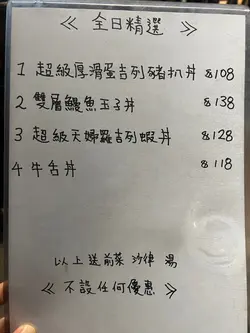 《 全日精選 》
1 超級厚滑蛋吉列豬扒丼 $108
2 雙層鰻魚玉子丼 $138
3 超級天婦羅吉列蝦丼 $128
4 牛舌丼 $118
以上送前菜 沙律 湯
《 不設任何優惠 》